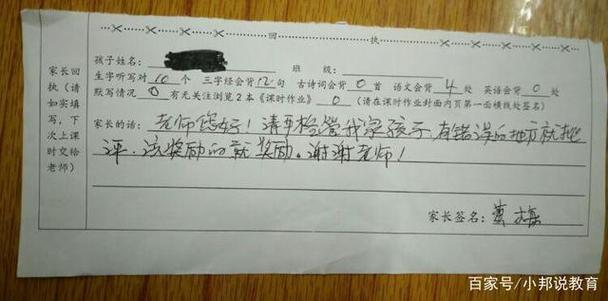 回 执
孩子姓名: 班 级:
生字听写对10个 三字经会背12句 古诗词会背0首 语文会背4处 英语会背0处
默写情况0有无关注浏览2本《课时作业》0(请在课时作业封面内页第一面横线处签名)
家长回执(请如实填写,下次上课时交给老师)
家长的话: 老师您好!请严格管我家孩子,有错误的地方就批
评.该奖励的就奖励。谢谢老师!
家长签名:
百家号/小邦说教育